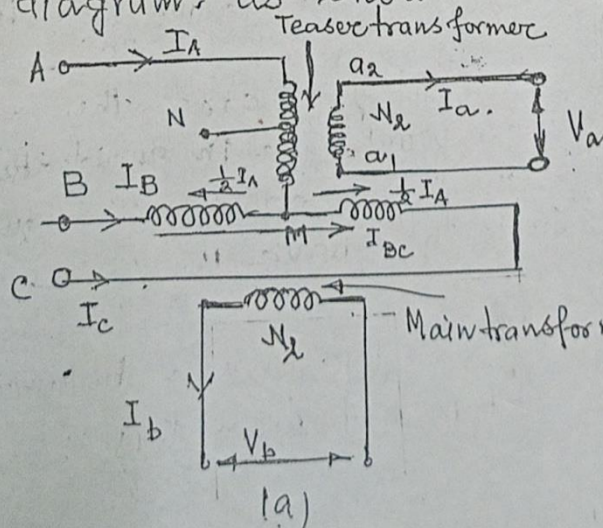 diagram. as
Teaser transformer
A I_A
a2
N N2 I_a. V_a
a1
B I_B ½ I_A ½ I_A
M I_BC
C
I_c
Main transfor
N2
I_b
V_b
(a)